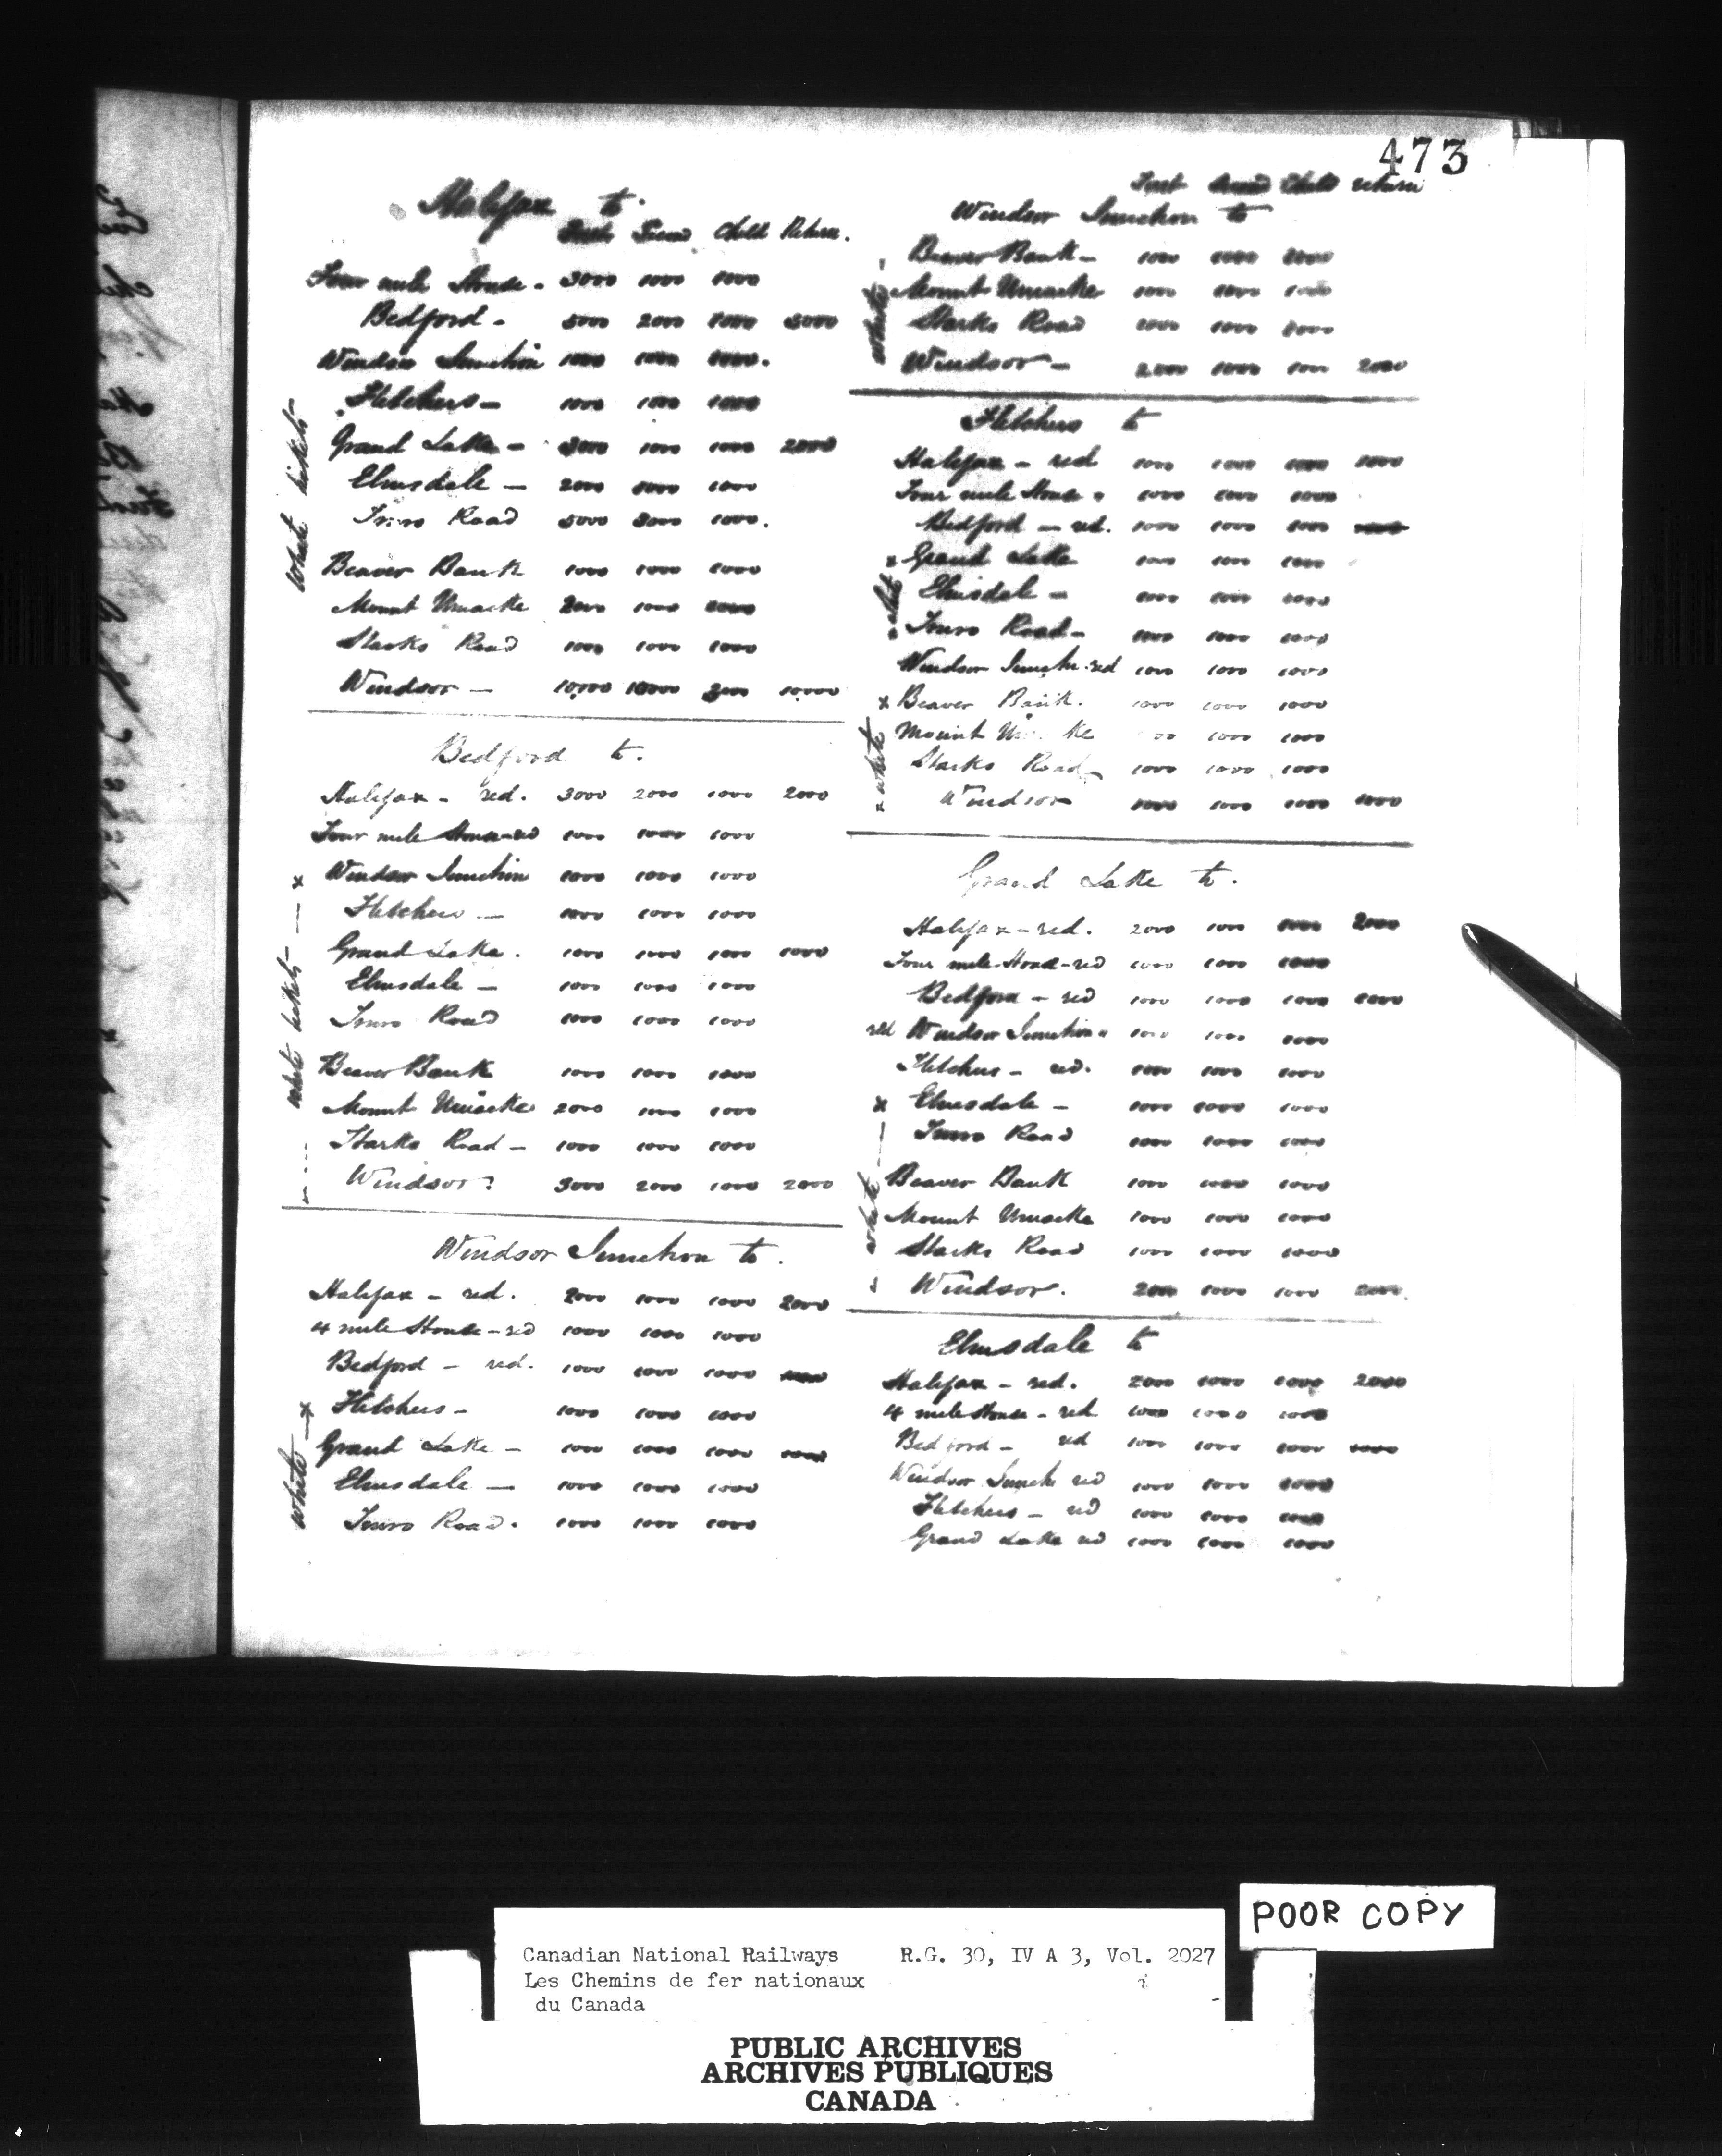 473
Halifax to.
First Second Child Return.
Four mile House - 3000 1000 1000
Bedford - 5000 2000 1000 5000
Windsor Junction 1000 1000 1000.
Fletchers - 1000 1000 1000
Grand Lake - 3000 1000 1000 2000
Elmsdale - 2000 1000 1000
Truro Road 5000 3000 1000.
Beaver Bank 1000 1000 1000
Mount Uniacke 2000 1000 1000
Starks Road 1000 1000 1000
Windsor - 10,000 10000 3000 10,000
white tickets
Bedford to.
Halifax - red. 3000 2000 1000 2000
Four mile House - red 1000 1000 1000
Windsor Junction 1000 1000 1000
Fletchers - 1000 1000 1000
Grand Lake. 1000 1000 1000 1000
Elmsdale - 1000 1000 1000
Truro Road 1000 1000 1000
Beaver Bank 1000 1000 1000
Mount Uniacke 2000 1000 1000
Starks Road - 1000 1000 1000
Windsor: 3000 2000 1000 2000
white tickets - x
Windsor Junction to.
Halifax - red. 2000 1000 1000 2000
4 mile House - red 1000 1000 1000
Bedford - red. 1000 1000 1000
Fletchers - 1000 1000 1000
Grand Lake - 1000 1000 1000 1000
Elmsdale - 1000 1000 1000
Truro Road. 1000 1000 1000
white - x
First Second Child return
Windsor Junction to
Beaver Bank - 1000 1000 1000
Mount Uniacke 1000 1000 1000
Starks Road 1000 1000 1000
Windsor - 2000 1000 1000 2000
white
Fletchers to
Halifax - red 1000 1000 1000 1000
Four mile House " 1000 1000 1000
Bedford - red. 1000 1000 1000
x Grand Lake 1000 1000 1000
Elmsdale - 1000 1000 1000
Truro Road - 1000 1000 1000
white
Windsor Junctn. red 1000 1000 1000
x Beaver Bank. 1000 1000 1000
Mount 1000 1000
Starks Road 1000 1000 1000
Windsor 1000 1000 1000 1000
x white
Grand Lake to.
Halifax - red. 2000 1000 1000 2000
Four mile House - red 1000 1000 1000
Bedford - red 1000 1000 1000 1000
red Windsor Junction " 1000 1000 1000
Fletchers - red. 1000 1000 1000
x Elmsdale - 1000 1000 1000
Truro Road 1000 1000 1000
Beaver Bank 1000 1000 1000
Mount Uniacke 1000 1000 1000
Starks Road 1000 1000 1000
Windsor. 2000 1000 1000 2000
white
Elmsdale to
Halifax - red. 2000 1000 1000 2000
4 mile House - red 1000 1000 1000
Bedford - red 1000 1000 1000 1000
Windsor Junctn red 1000 1000 1000
Fletchers - red 1000 1000 1000
Grand Lake red 1000 1000 1000
POOR COPY
Canadian National Railways R.G. 30, IV A 3, Vol. 2027
Les Chemins de fer nationaux
du Canada
PUBLIC ARCHIVES
ARCHIVES PUBLIQUES
CANADA